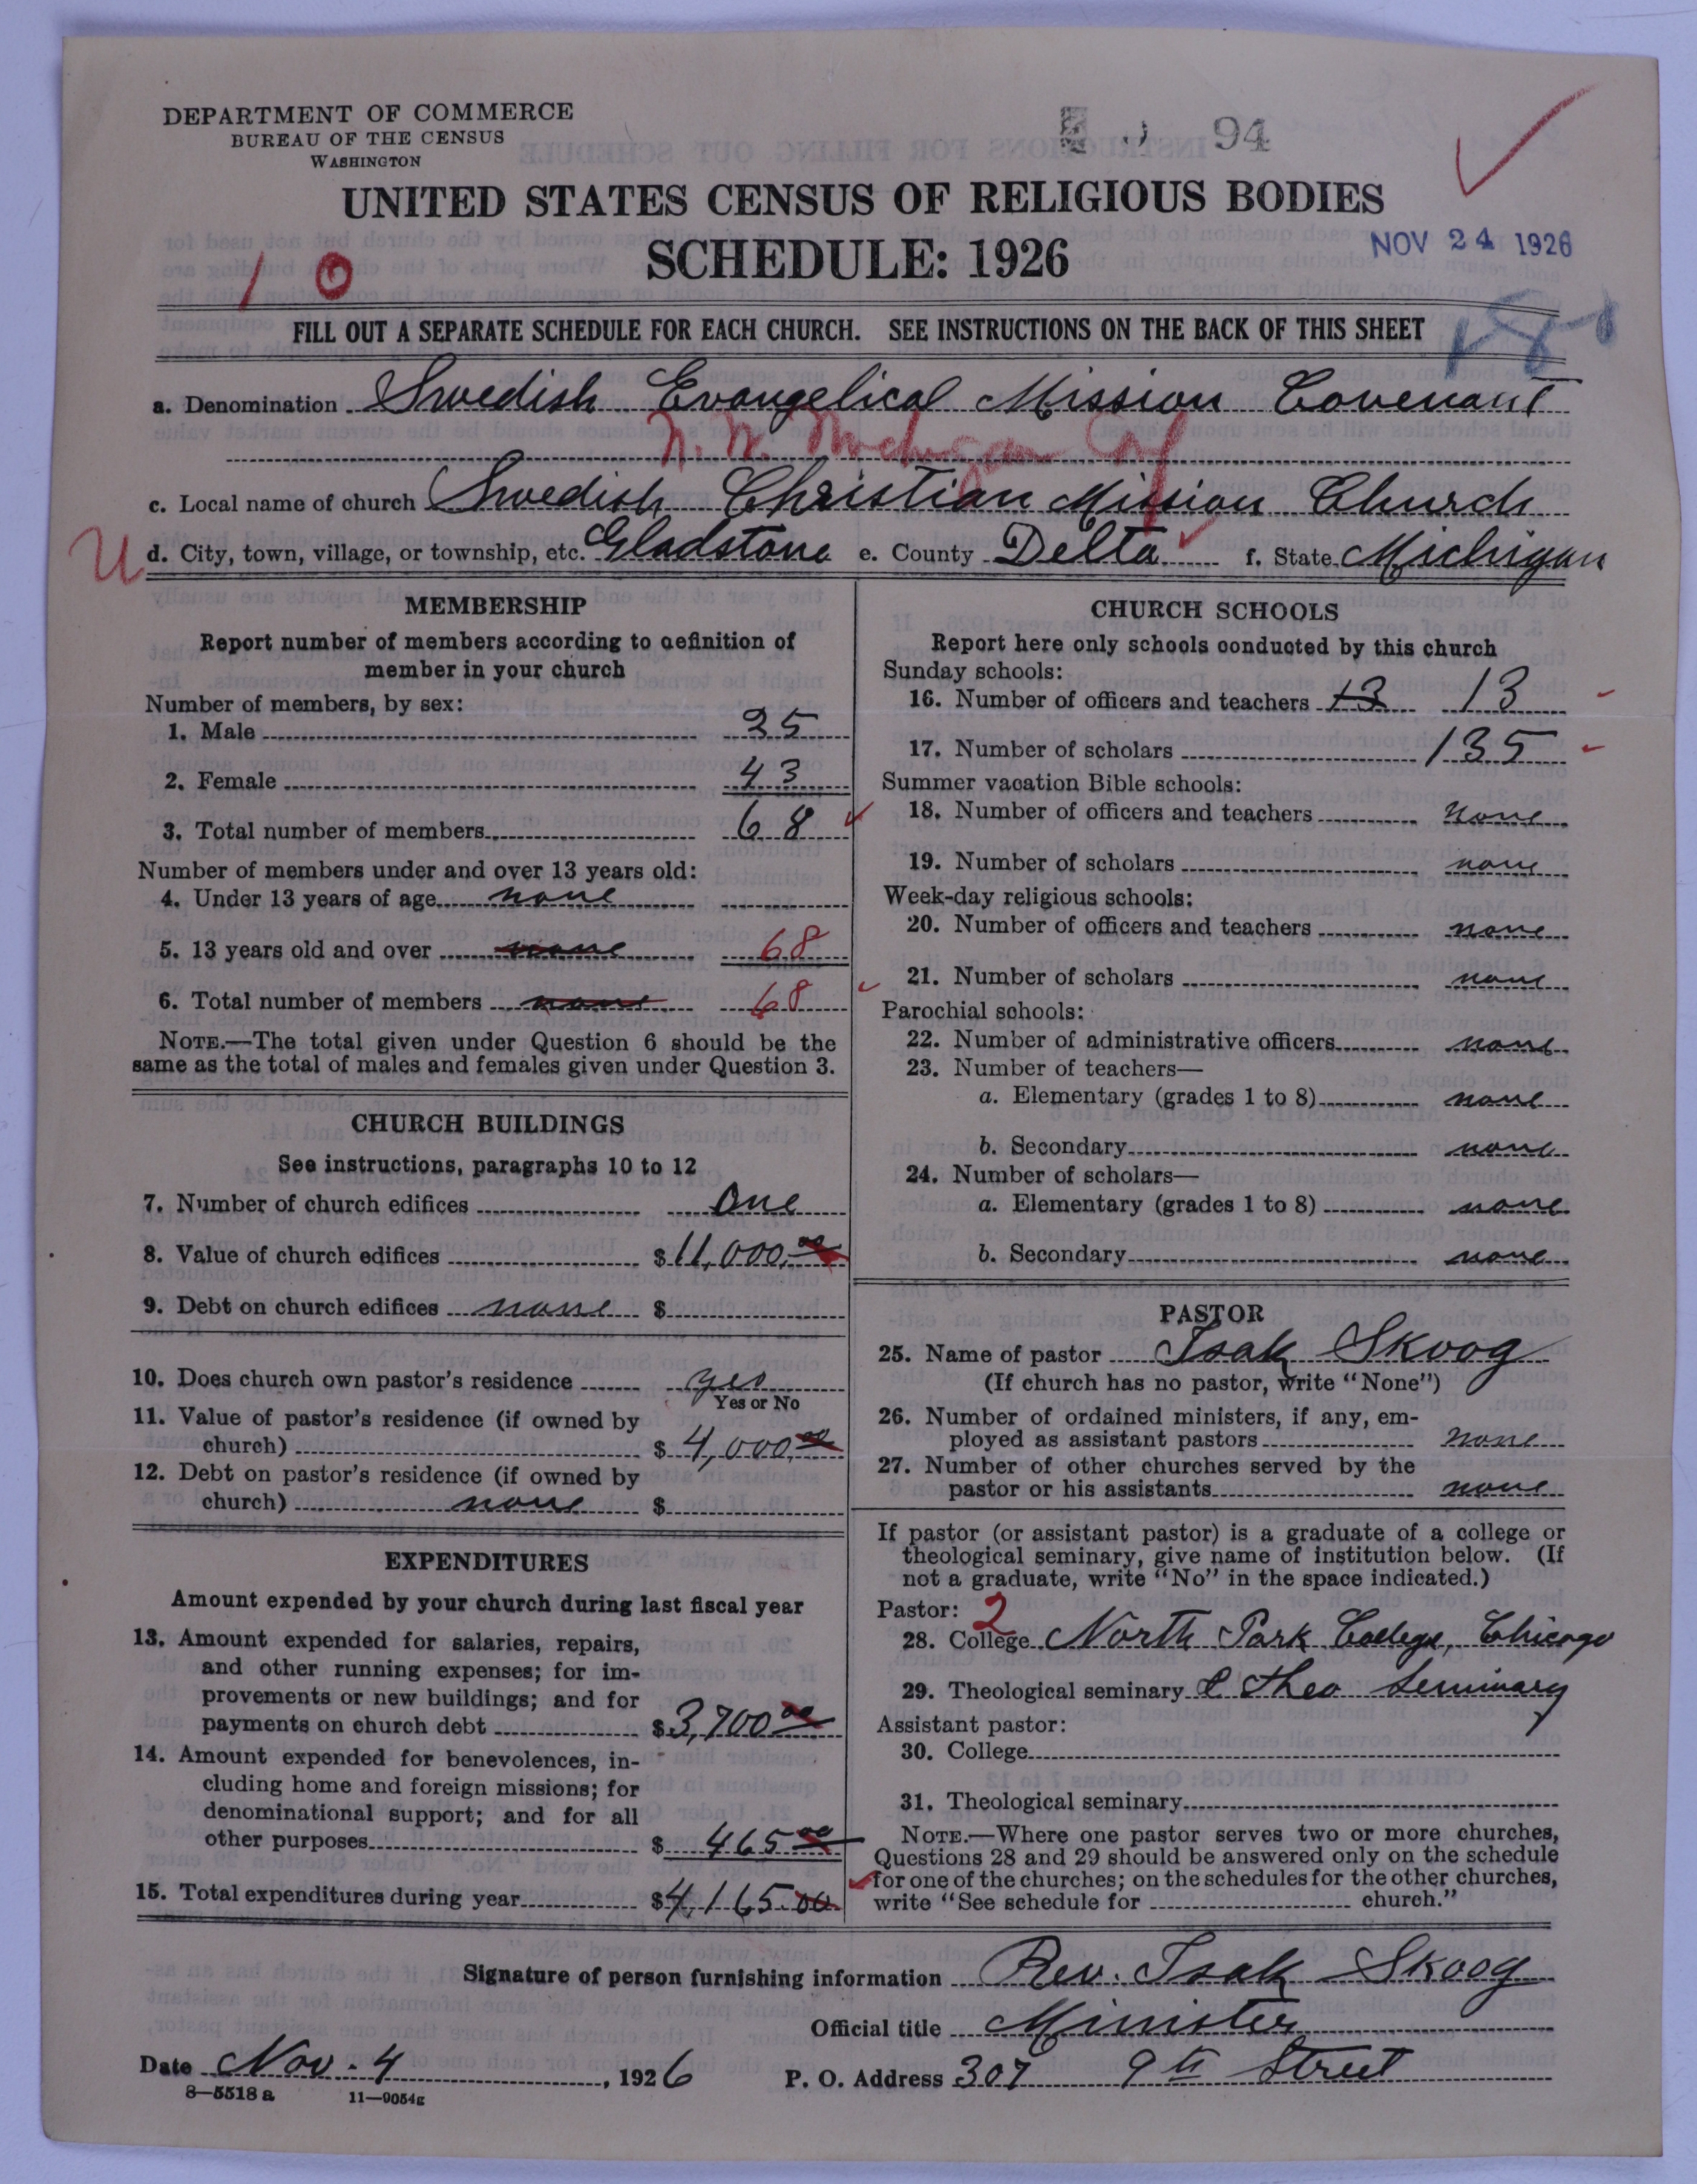 DEPARTMENT OF COMMERCE
BUREAU OF THE CENSUS
WASHINGTON
94
UNITED STATES CENSUS OF RELIGIOUS BODIES
SCHEDULE: 1926
NOV 24 1926
1 0
FILL OUT A SEPARATE SCHEDULE FOR EACH CHURCH. SEE INSTRUCTIONS ON THE BACK OF THIS SHEET
a. Denomination Swedish Evangelical Mission Covenant
N. W. Michigan
c. Local name of church Swedish Christian Mission Church
U
d. City, town, village, or township, etc. Gladstone e. County Delta f. State Michigan
MEMBERSHIP
Report number of members according to definition of
member in your church
Number of members, by sex:
1. Male 25
2. Female 43
3. Total number of members 68
Number of members under and over 13 years old:
4. Under 13 years of age none
5. 13 years old and over none 68
6. Total number of members none 68
NOTE.—The total given under Question 6 should be the
same as the total of males and females given under Question 3.
CHURCH BUILDINGS
See instructions, paragraphs 10 to 12
7. Number of church edifices One
8. Value of church edifices $ 11,000.00
9. Debt on church edifices none $
10. Does church own pastor's residence yes
Yes or No
11. Value of pastor's residence (if owned by
church) $ 4,000.00
12. Debt on pastor's residence (if owned by
church) none $
EXPENDITURES
Amount expended by your church during last fiscal year
13. Amount expended for salaries, repairs,
and other running expenses; for im-
provements or new buildings; and for
payments on church debt $ 3,700 00
14. Amount expended for benevolences, in-
cluding home and foreign missions; for
denominational support; and for all
other purposes $ 465 00
15. Total expenditures during year $ 4,165 00
CHURCH SCHOOLS
Report here only schools conducted by this church
Sunday schools:
16. Number of officers and teachers 13 13
17. Number of scholars 135
Summer vacation Bible schools:
18. Number of officers and teachers None
19. Number of scholars none
Week-day religious schools:
20. Number of officers and teachers none
21. Number of scholars none
Parochial schools:
22. Number of administrative officers none
23. Number of teachers—
a. Elementary (grades 1 to 8) none
b. Secondary none
24. Number of scholars—
a. Elementary (grades 1 to 8) none
b. Secondary none
PASTOR
25. Name of pastor Isak Skoog
(If church has no pastor, write "None")
26. Number of ordained ministers, if any, em-
ployed as assistant pastors none
27. Number of other churches served by the
pastor or his assistants none
If pastor (or assistant pastor) is a graduate of a college or
theological seminary, give name of institution below. (If
not a graduate, write "No" in the space indicated.)
Pastor: 2
28. College North Park College, Chicago
29. Theological seminary & Theo Seminary
Assistant pastor:
30. College
31. Theological seminary
NOTE.—Where one pastor serves two or more churches,
Questions 28 and 29 should be answered only on the schedule
for one of the churches; on the schedules for the other churches,
write "See schedule for church."
Signature of person furnishing information Rev. Isak Skoog
Official title Minister
Date Nov. 4, 1926 P. O. Address 307 9th Street
8—5518 a 11—9054g